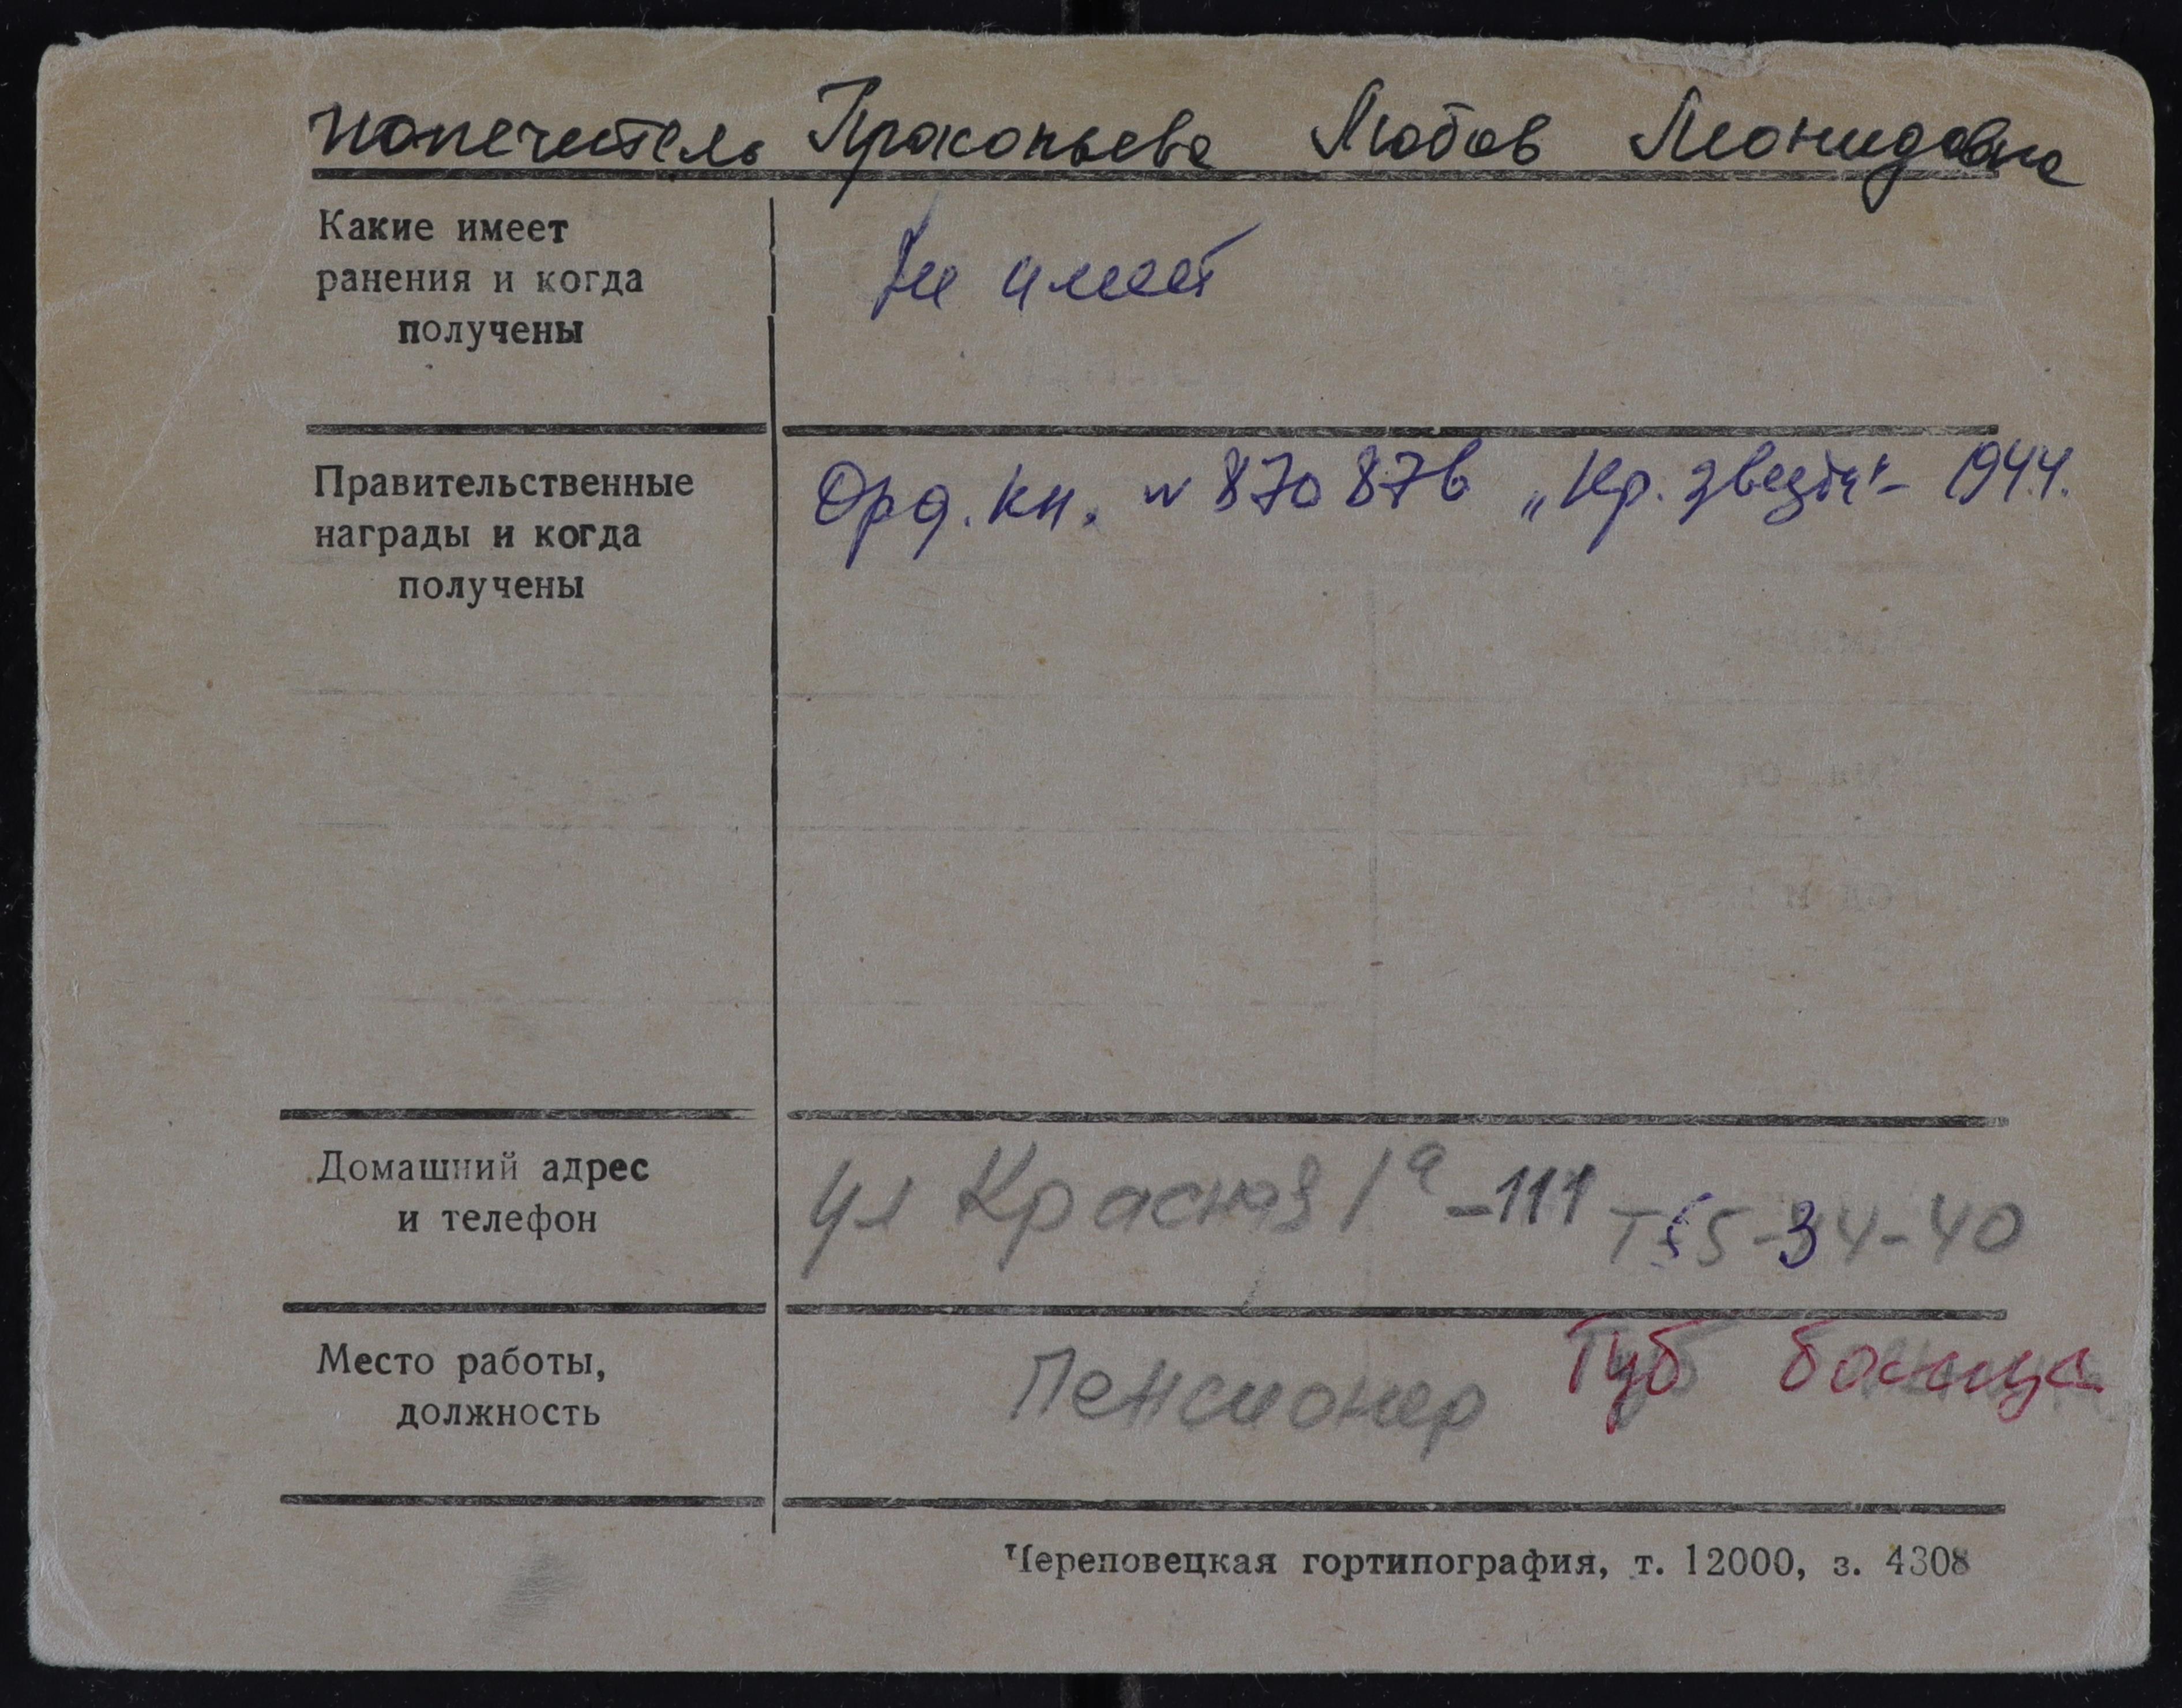 попечитель Прокопьева Любов Леонидовна
Какие имеет
ранения и когда
получены
Не имеет
Правительственные
награды и когда
получены
Орд. кн. № 870876 „Кр. звезда“ - 1944.
Домашний адрес
и телефон
ул Красная 1а - 111 т 55-34-40
Место работы,
должность
Пенсионер Туб больница
Череповецкая гортипография, т. 12000, з. 4308